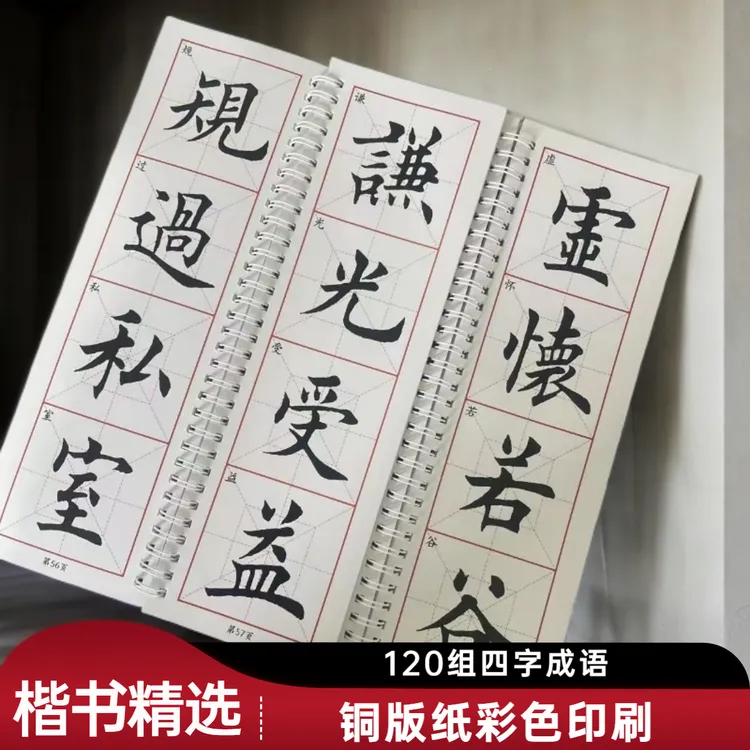 规
規
过
過
私
私
室
室
第56页
谦
謙
光
光
受
受
益
益
第57页
虚
虛
怀
懷
若
若
谷
谷
120组四字成语
楷书精选
铜版纸彩色印刷